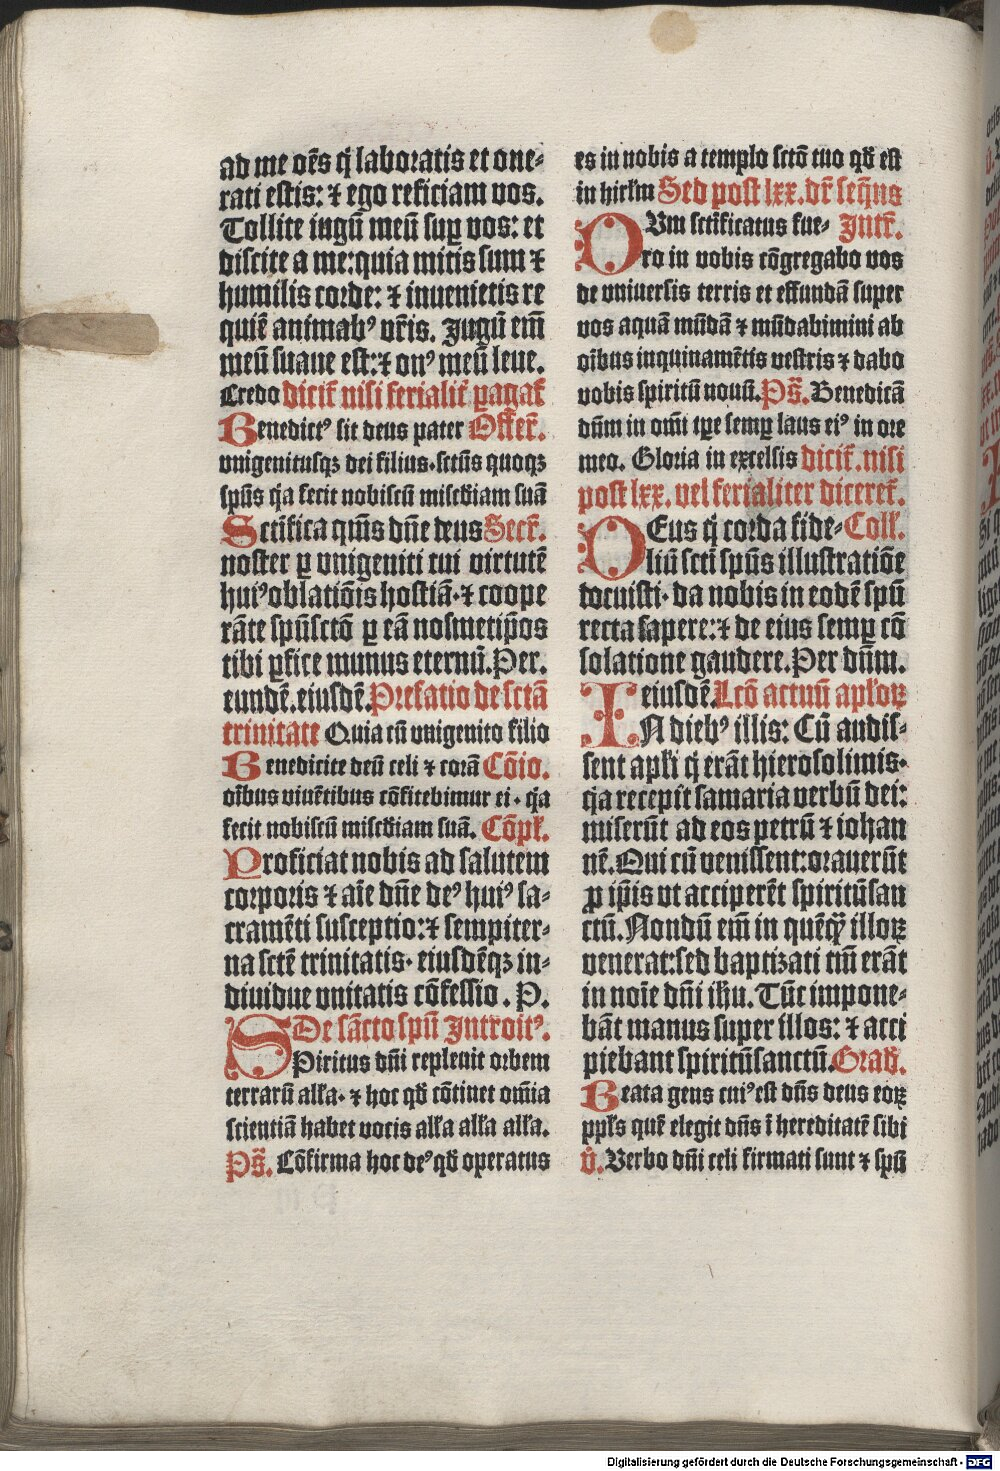 ad me oēs q̄ laboratis et one⸗
rati estis: ⁊ ego reficiam vos.
Tollite iugū meū sup̱ vos: et
discite a me: quia mitis sum ⁊
humilis corde: ⁊ inuenietis re
quiē animabꝰ vr̄is. Jugū em̄
meū suaue est: ⁊ onꝰ meū leue.
Credo dicit̄ nisi ferialit̄ ꝑagat̄
Benedictꝰ sit deus pater Offer̄.
vnigenitusqꝫ dei filius· sctūs quoqꝫ
spūs q̄a fecit nobiscū misc̄diam suā
Sctīfica qūs dn̄e deus Secr̄.
noster ꝑ vnigeniti tui virtutē
huiꝰ oblatiōis hostiā· ⁊ coope
rāte spūsctō ꝑ eā nosmetip̄os
tibi ꝑfice munus eternū. Per.
eundē. eiusdē. Prefatio de sctā
trinitate Quia cū vnigenito filio
Benedicite deū celi ⁊ corā Cōio.
oībus viuētibus cōfitebimur ei · q̄a
fecit nobiscū misc̄diam suā. Cōpl̄.
Proficiat nobis ad salutem
corporis ⁊ aīe dn̄e deꝰ huiꝰ sa⸗
cramēti susceptio: ⁊ sempiter⸗
na sctē trinitatis· eiusdēqꝫ in⸗
diuidue vnitatis cōfessio. P.
De sācto spū Introitꝰ.
Spiritus dn̄i repleuit orbem
terrarū all̄a· ⁊ hoc qd̄ cōtinet om̄ia
scientiā habet vocis all̄a all̄a all̄a.
Ps̄. Cōfirma hoc deꝰ qd̄ operatus
es in nobis a templo sctō tuo qd̄ est
in hirl̄m Sed post lxx. dr̄ seq̄ns
Vm sctīficatus fue⸗ Intr̄.
ro in vobis cōgregabo vos
de vniuersis terris et effundā super
vos aquā mūdā ⁊ mūdabimini ab
oībus inquinamētis vestris ⁊ dabo
vobis spiritū nouū. Ps̄. Benedicā
dn̄m in om̄i tp̄e semp̱ laus eiꝰ in ore
meo. Gloria in excelsis dicit̄. nisi
post lxx. vel ferialiter diceret̄.
DEus q̄ corda fide⸗ Coll̄.
liū scti spūs illustratiōe
docuisti· da nobis in eodē spū
recta sapere: ⁊ de eius semp̱ cō
solatione gaudere. Per dn̄m.
eiusdē. Lcō actuū apl̄oꝝ
IN diebꝰ illis: Cū audis⸗
sent apl̄i q̄ erāt hierosolimis·
q̄a recepit samaria verbū dei:
miserūt ad eos petrū ⁊ iohan
nē. Qui cū venissent: orauerūt
ꝓ ip̄is vt acciperēt spiritūsan
ctū. Nondū em̄ in quēq̄ȝ illoꝝ
venerat: sed baptizati tm̄ erāt
in noīe dn̄i ih̄u. Tūc impone⸗
bāt manus super illos: ⁊ acci
piebant spiritūsanctū. Grad̄.
Beata gens cuiꝰ est dn̄s deus eoꝝ
ppl̄s quē elegit dn̄s ī hereditatē sibi
v̄. Verbo dn̄i celi firmati sunt ⁊ spū
Digitalisierung gefördert durch die Deutsche Forschungsgemeinschaft - DFG